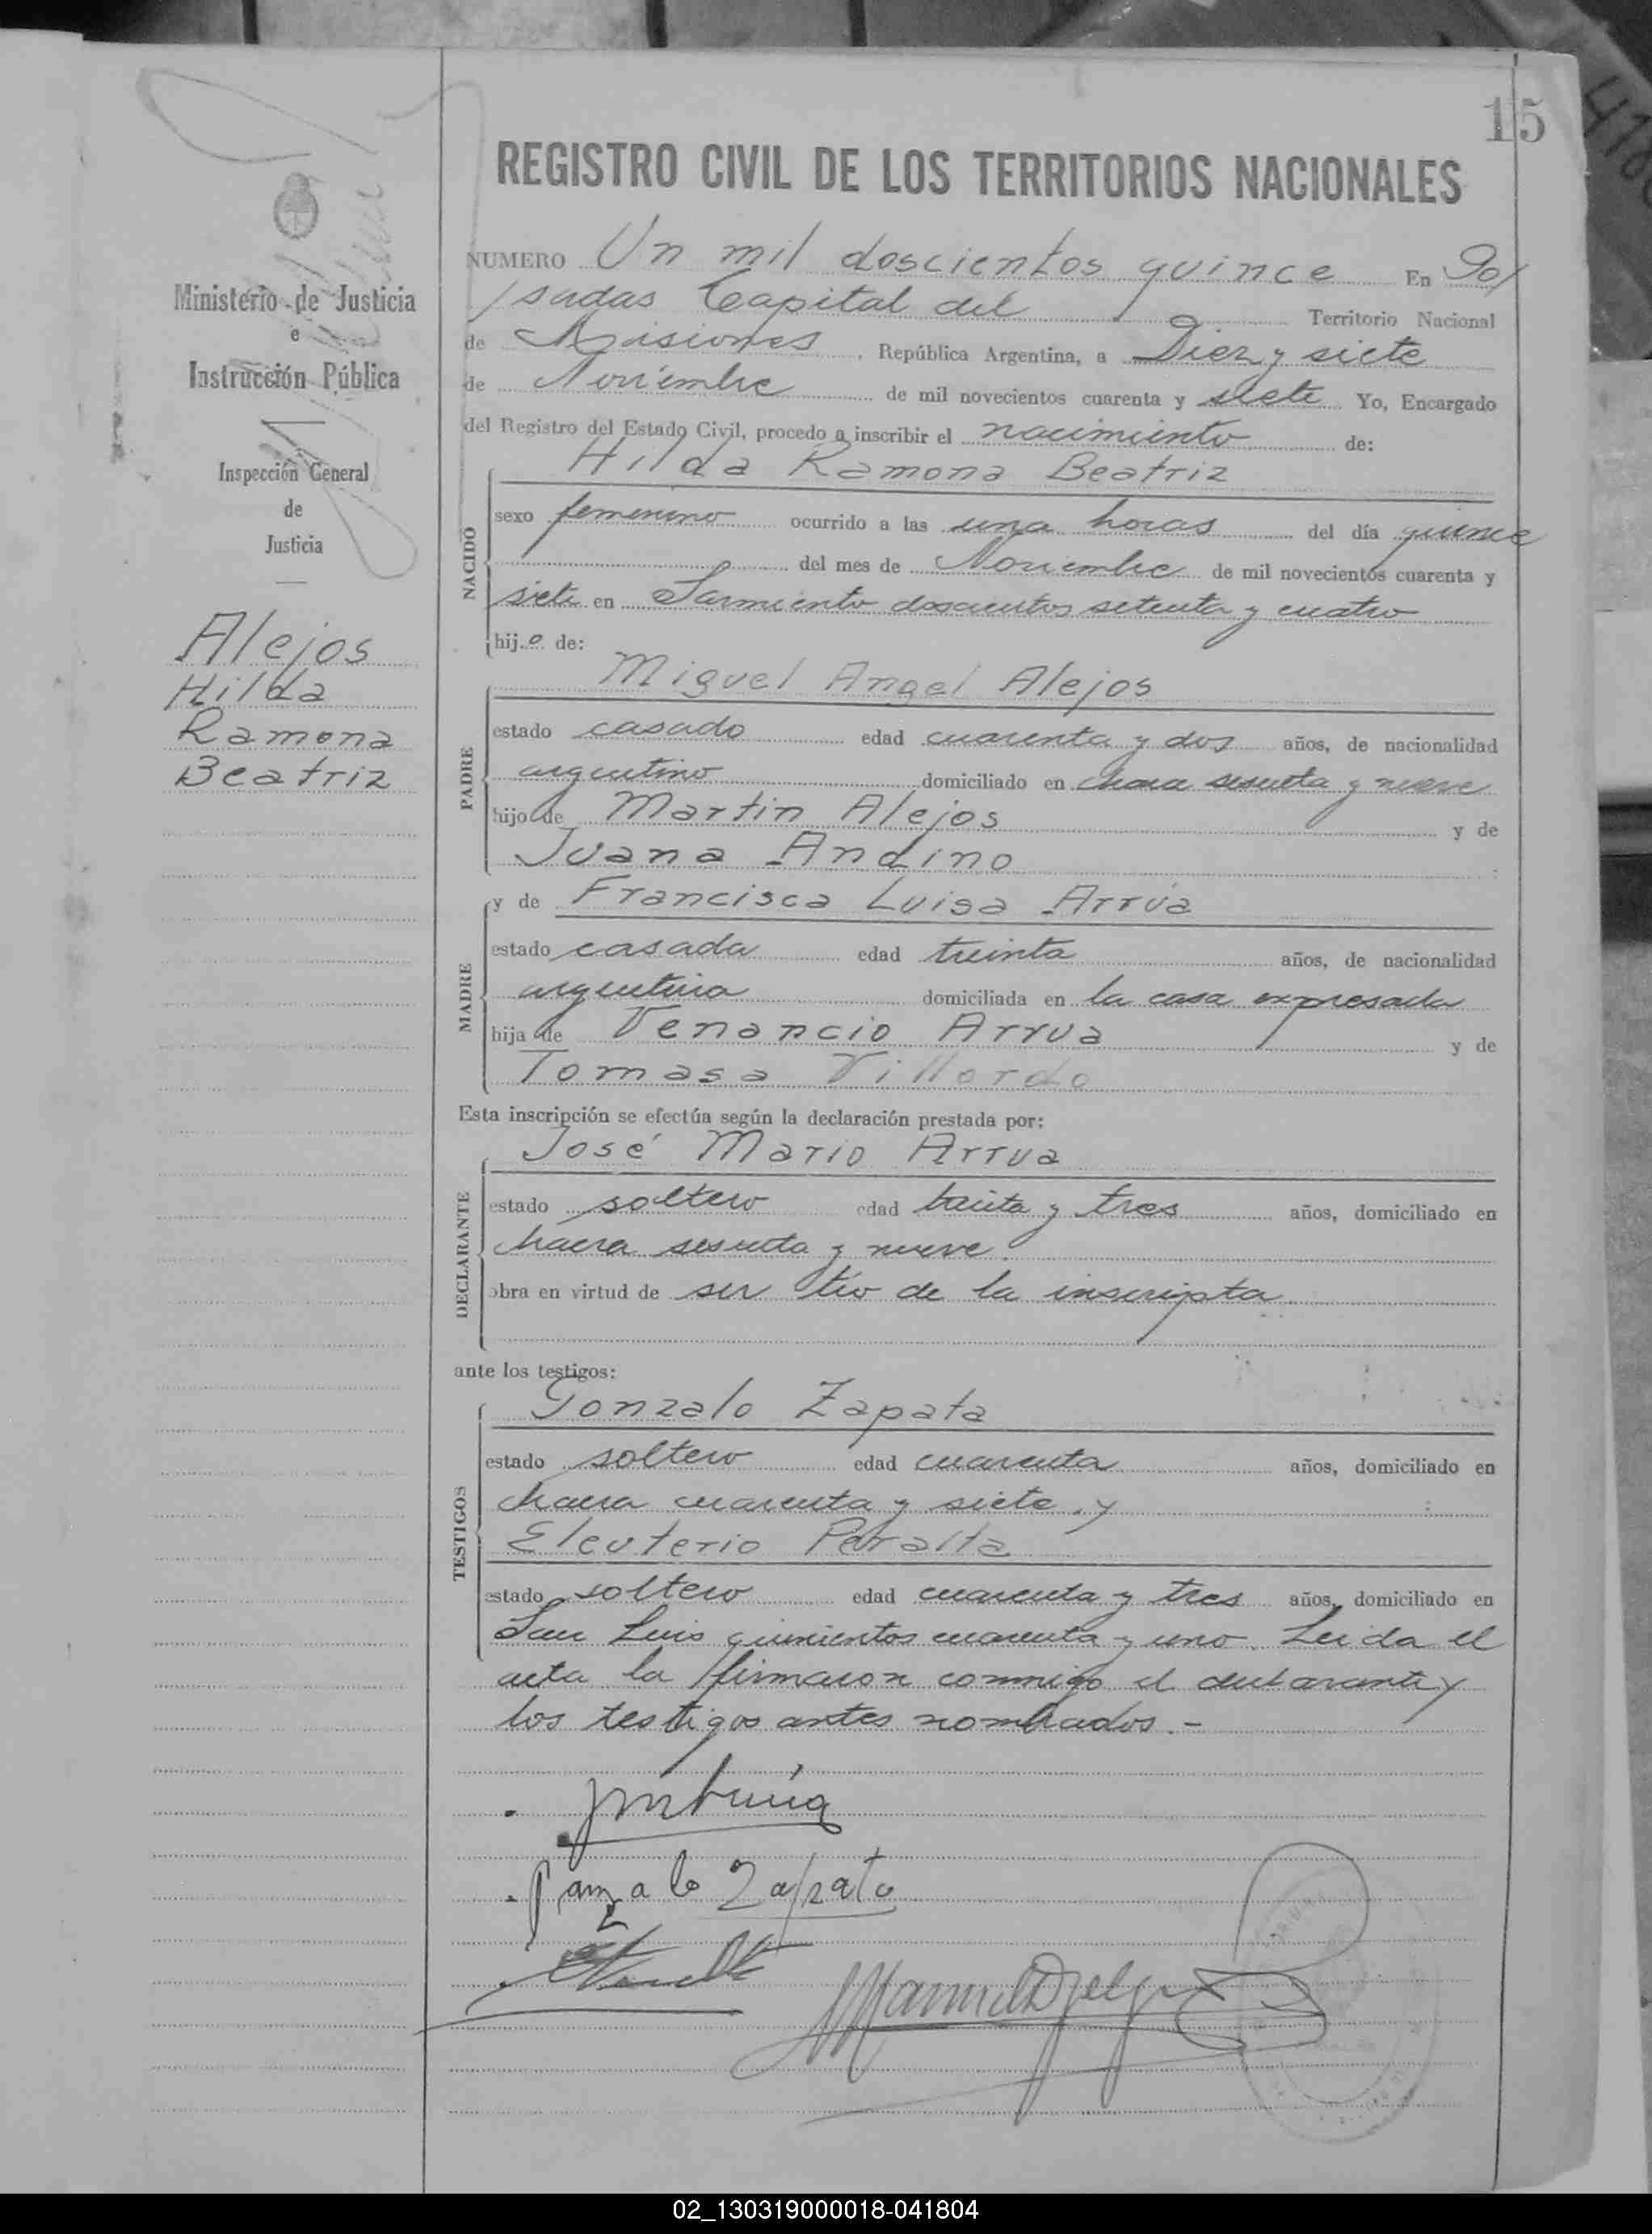 15
REGISTRO CIVIL DE LOS TERRITORIOS NACIONALES
Ministerio de Justicia
e
Instrucción Pública
Inspección General
de
Justicia
Alejos
Hilda
Ramona
Beatriz
NUMERO Un mil doscientos quince En Po/
/sadas Capital del Territorio Nacional
de Misiones, República Argentina, a Diez y siete
de Noviembre de mil novecientos cuarenta y siete Yo, Encargado
del Registro del Estado Civil, procedo a inscribir el nacimiento de:
Hilda Ramona Beatriz
NACIDO
sexo femenino ocurrido a las una horas del día quince
del mes de Noviembre de mil novecientos cuarenta y
siete en Sarmiento doscientos setenta y cuatro
hijo de:
Miguel Angel Alejos
PADRE
estado casado edad cuarenta y dos años, de nacionalidad
argentino domiciliado en chacra sesenta y nueve
hijo de Martin Alejos y de
Juana Andino
y de Francisca Luisa Arrúa
MADRE
estado casada edad treinta años, de nacionalidad
argentina domiciliada en la casa expresada
hija de Venancio Arrua y de
Tomasa Villordo
Esta inscripción se efectúa según la declaración prestada por:
José Mario Arrua
DECLARANTE
estado soltero edad treinta y tres años, domiciliado en
chacra sesenta y nueve.
obra en virtud de ser tío de la inscripta
ante los testigos:
Gonzalo Zapata
TESTIGOS
estado soltero edad cuarenta años, domiciliado en
chacra cuarenta y siete, y
Eleuterio Peralta
estado soltero edad cuarenta y tres años, domiciliado en
San Luis quinientos cuarenta y uno. Leida el
acta la firmaron conmigo el declarante y
los testigos antes nombrados.-
Gonzalo Zapata
02_130319000018-041804